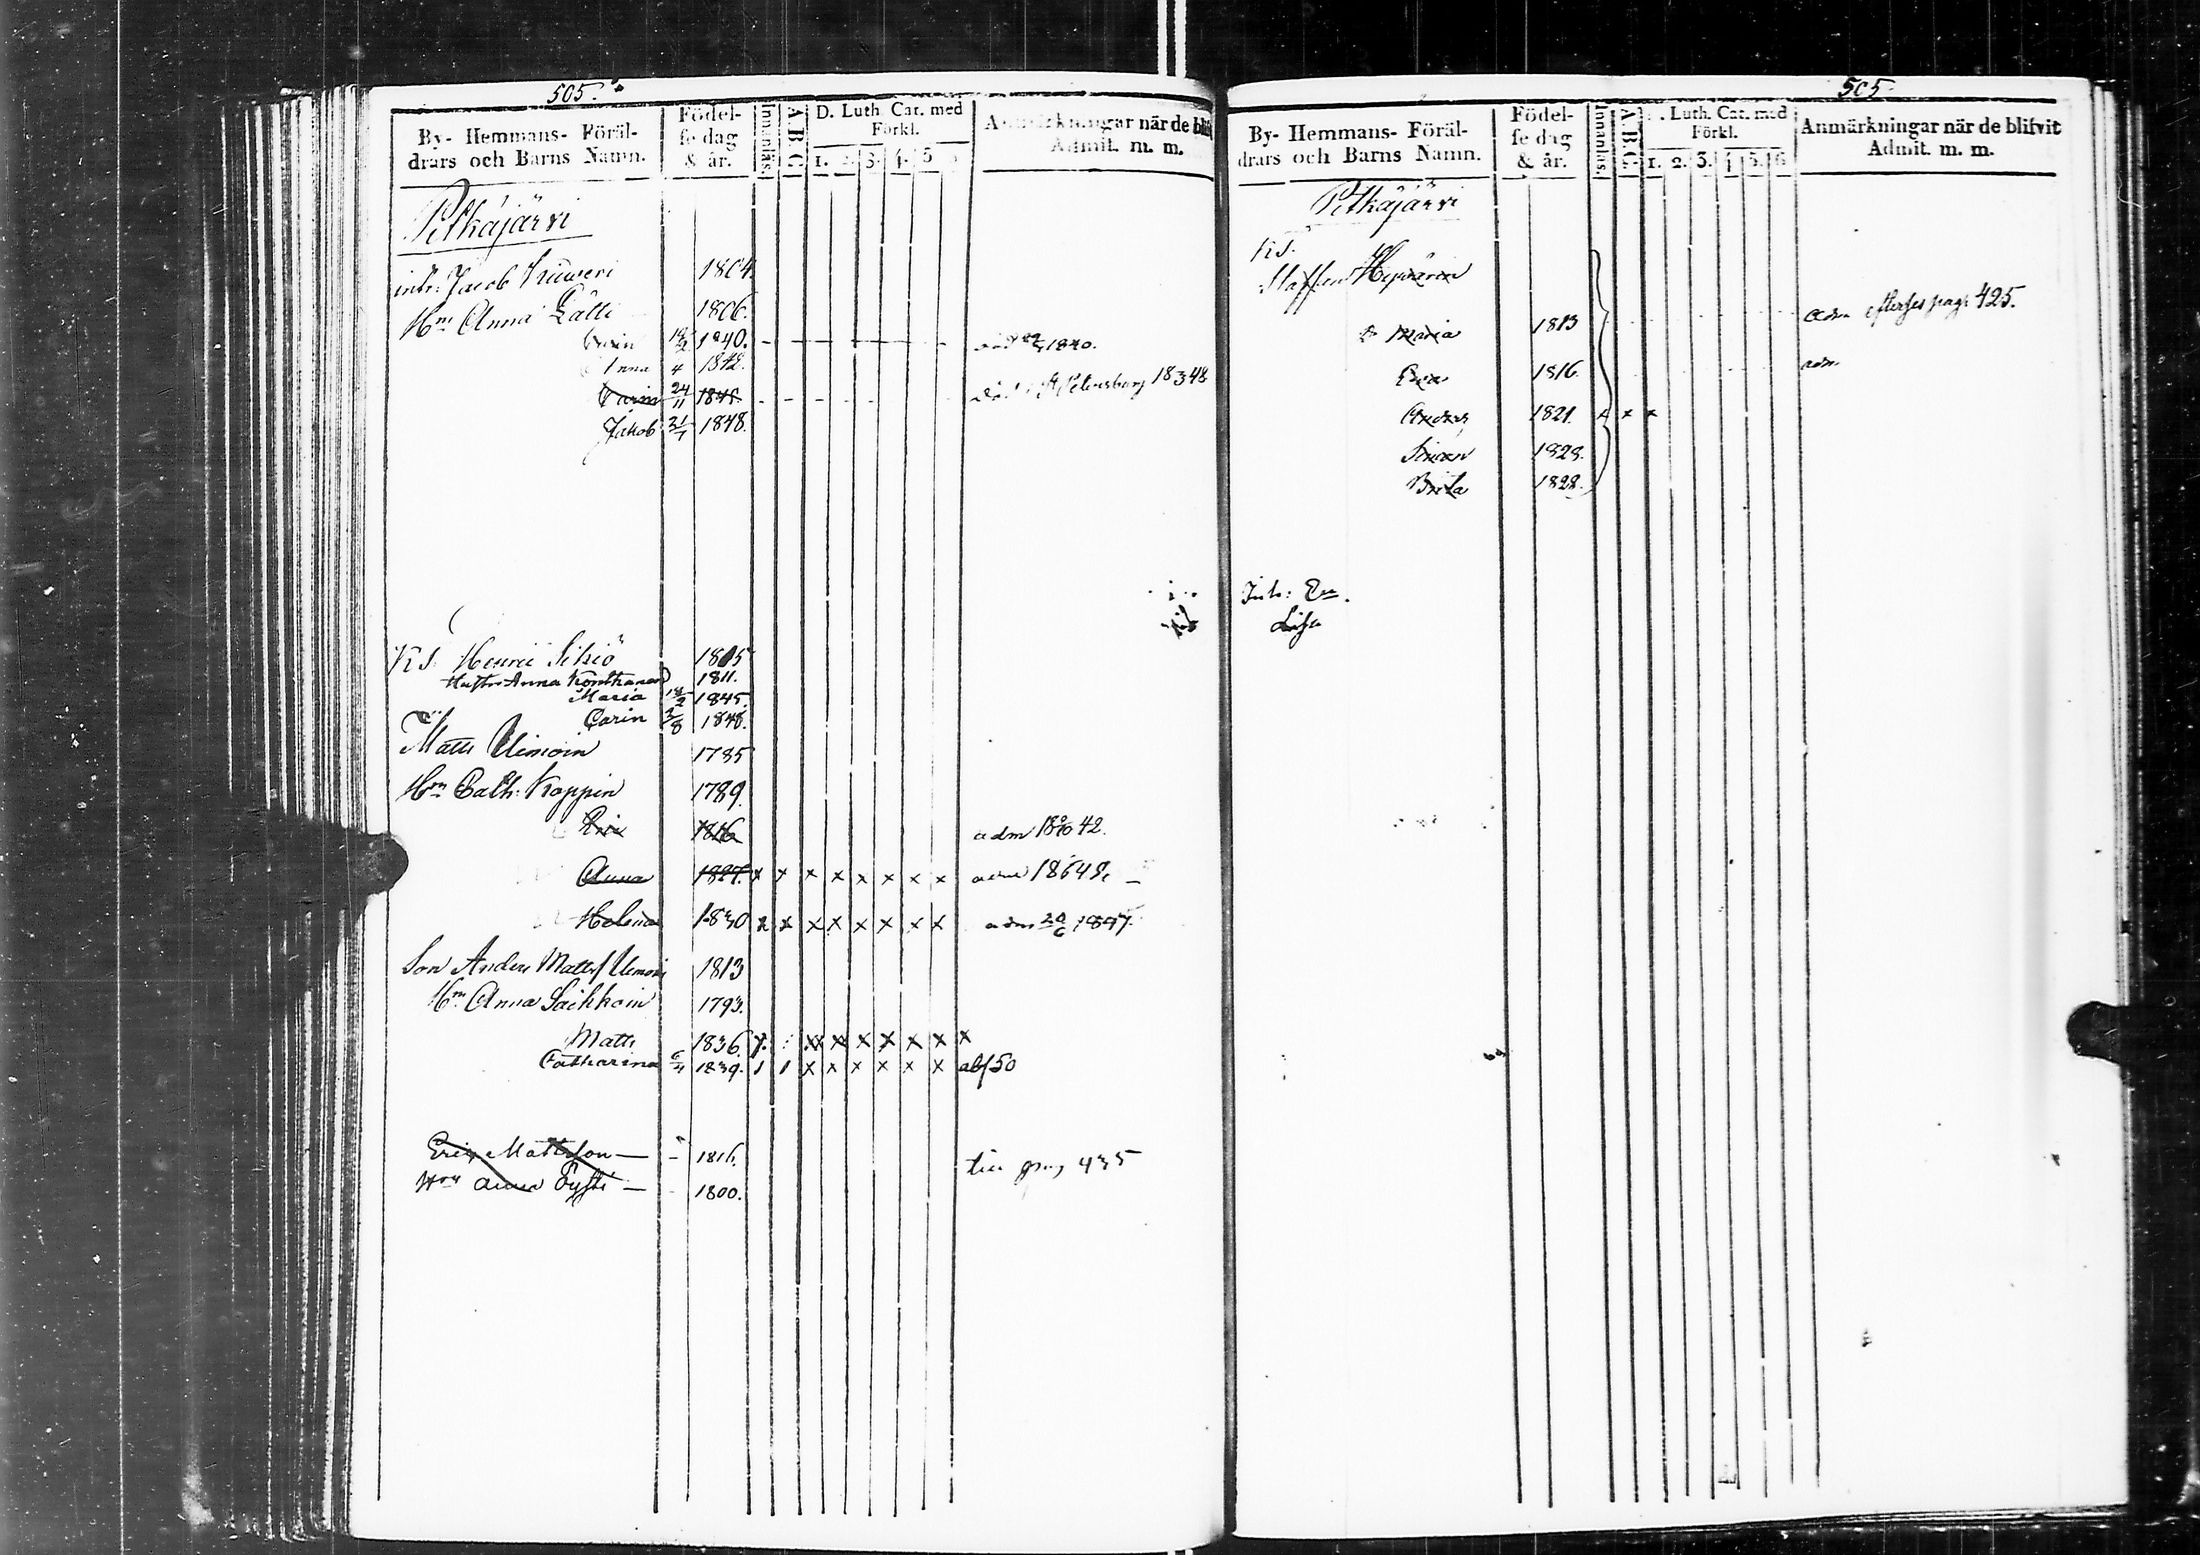 505.
By- Hemmans- Föräl-
drars och Barns Namn.
Födel-
se dag
& år.
Innanläs.
A B C
D. Luth. Cat. med
Förkl.
1. 2. 3. 4. 5
Anmärkningar när de blif
Admit. m. m.
Pitkäjärvi
Jacob 1804
Hru Anna Lätti 1806.
1840. 1840.
Anna 4 1842.
Carin 24/11 1845. St Petersburg 1848
Jakob 21/7 1848.
KS. Henric Sikiö 1815
Hustr. Anna 1811.
Maria 18/2 1845.
Carin 3/8 1848.
Matts Uimoin 1785
Hru Cath: Koppin 1789.
1816 adm 18 42.
Anna 1827. x x x x x x x x adm 18
Helena 1830 x x x x x x x x adm 1847.
Son Anders Matts Uimoin 1813
Hru Anna Saikkoin 1793.
Matts 1836. x x x x x x x
Catharina 1839. 1 1 x x x x x x abs 50
Eric Mattsson — 1816. pag 435
Hru Anna — 1800.
505
By- Hemmans- Föräl-
drars och Barns Namn.
Födel-
se dag
& år.
Innanläs.
A B C.
Luth. Cat. med
Förkl.
1. 2. 3. 4 5. 6
Anmärkningar när de blifvit
Admit. m. m.
Pitkäjärvi
KS.
Staffan Hyvärin
Maria 1813 adm efterses pag. 425.
Eva 1816. adm
Anders 1821. x x x
Simon 1828.
Brita 1828.
Inh:
Lisa